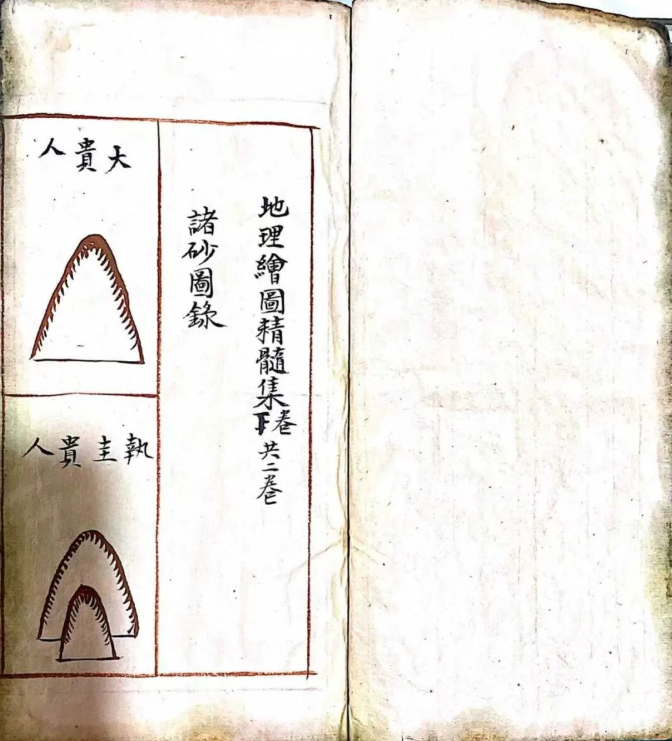 地理繪圖精髓集卷下共二卷
諸砂圖錄
大貴人
執圭貴人